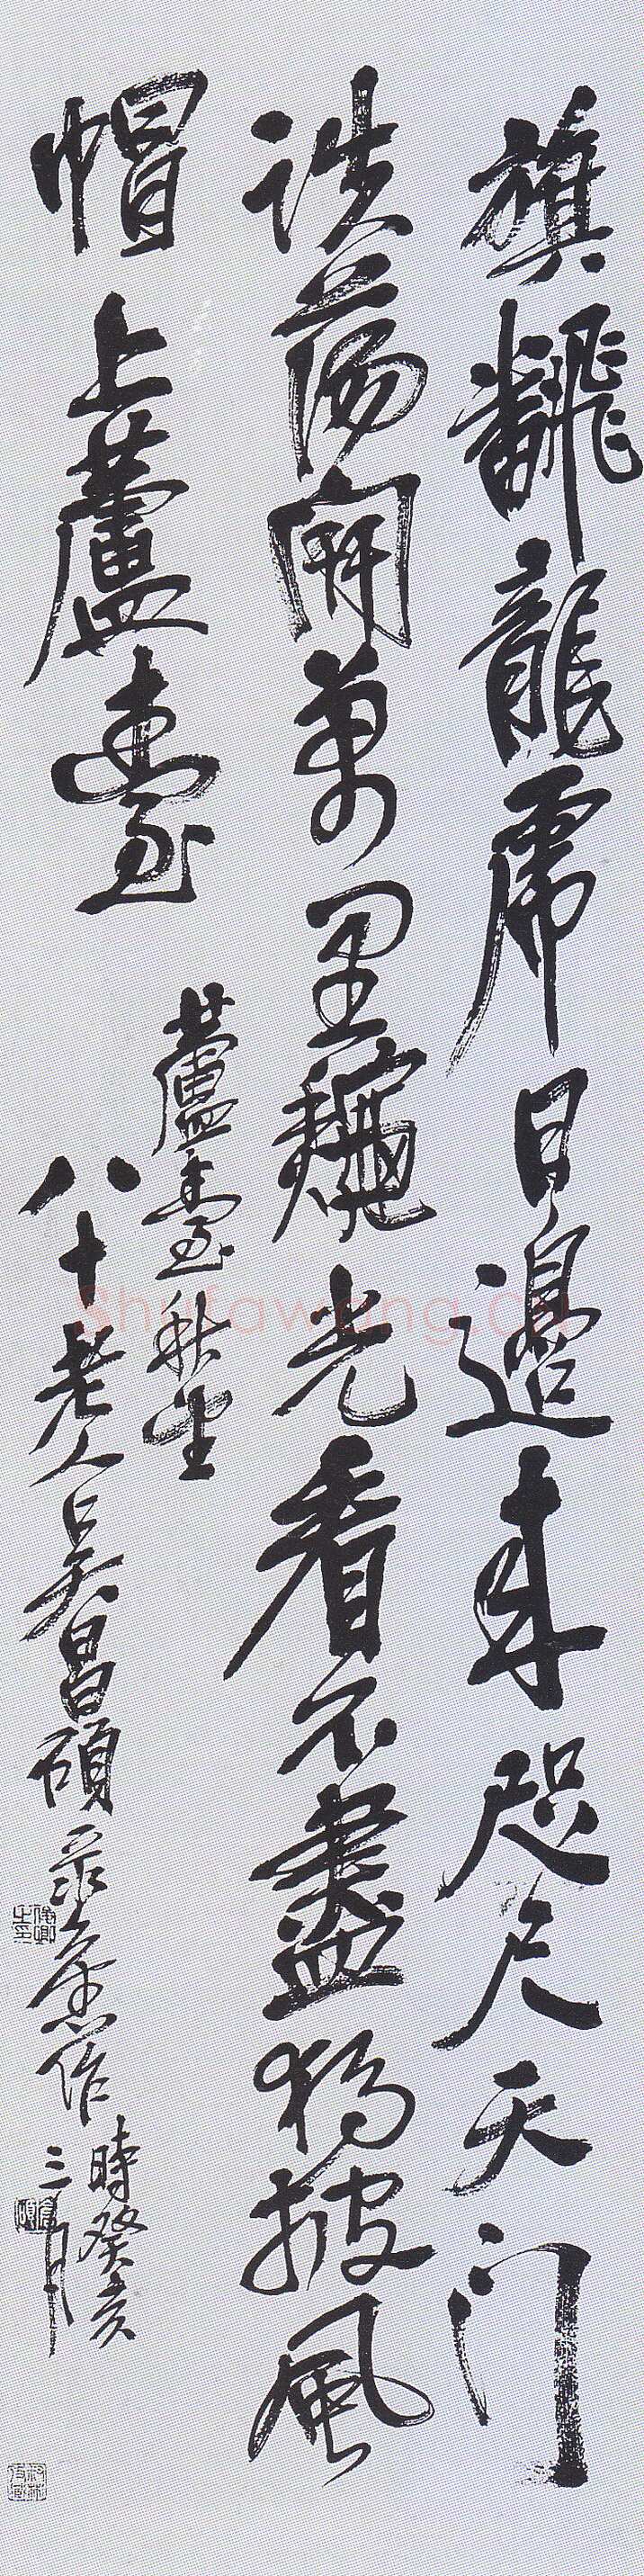 旗飜龍虎日邊來咫尺天門
詄蕩開萬里龝光看不盡獨披風
帽上蘆臺
蘆臺秋
八十老人吳昌碩作
時癸亥
三月
Shufawang.cn